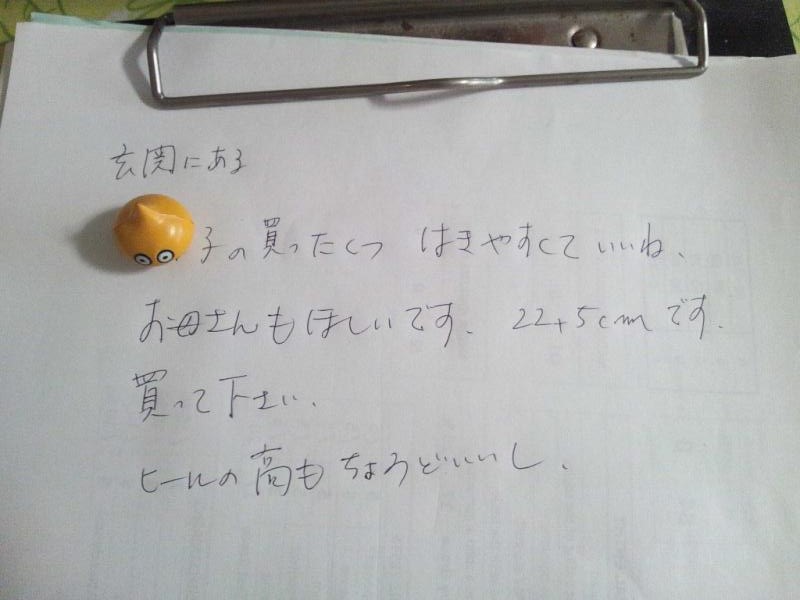 玄関にある
子の買ったくつ はきやすくていいね、
お母さんもほしいです。 22+5cmです。
買って下さい、
ヒールの高もちょうどいいし、